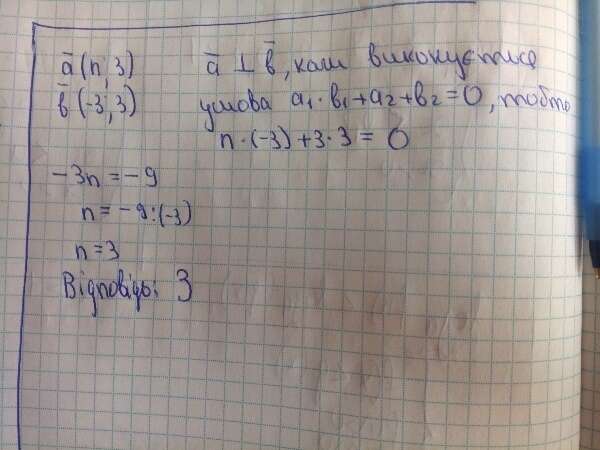 a̅ (n; 3) a̅ ⊥ b̅, коли виконується
b̅ (-3; 3) умова a₁·b₁+a₂+b₂=0, тобто
n·(-3)+3·3 = 0
-3n = -9
n = -9:(-3)
n = 3
Відповідь: 3